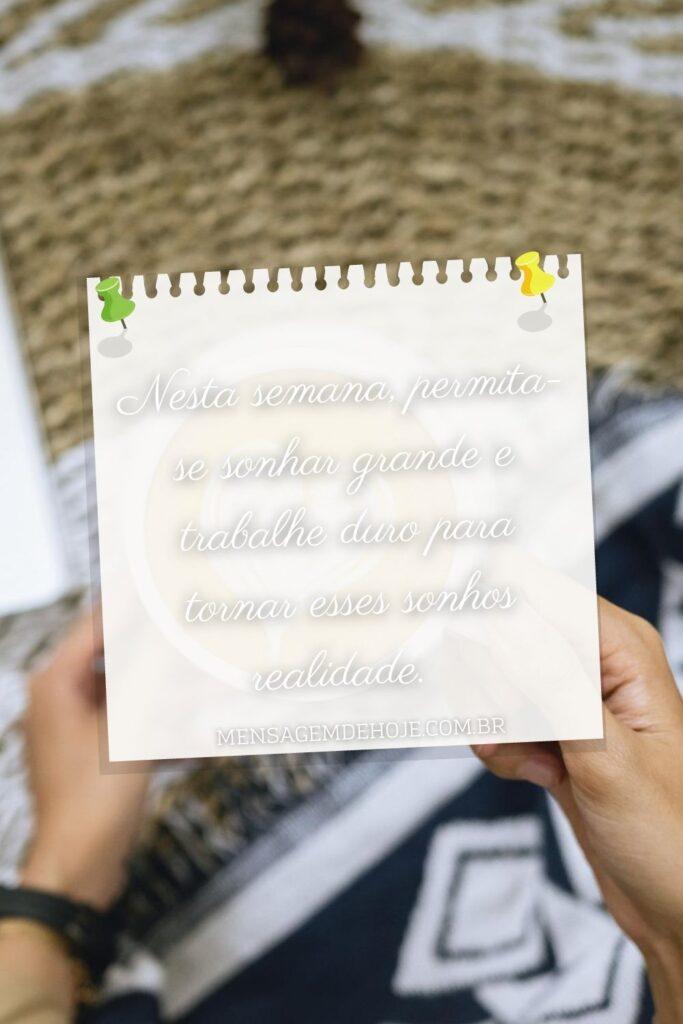 Nesta semana, permita-
se sonhar grande e
trabalhe duro para
tornar esses sonhos
realidade.
MENSAGEMDEHOJE.COM.BR